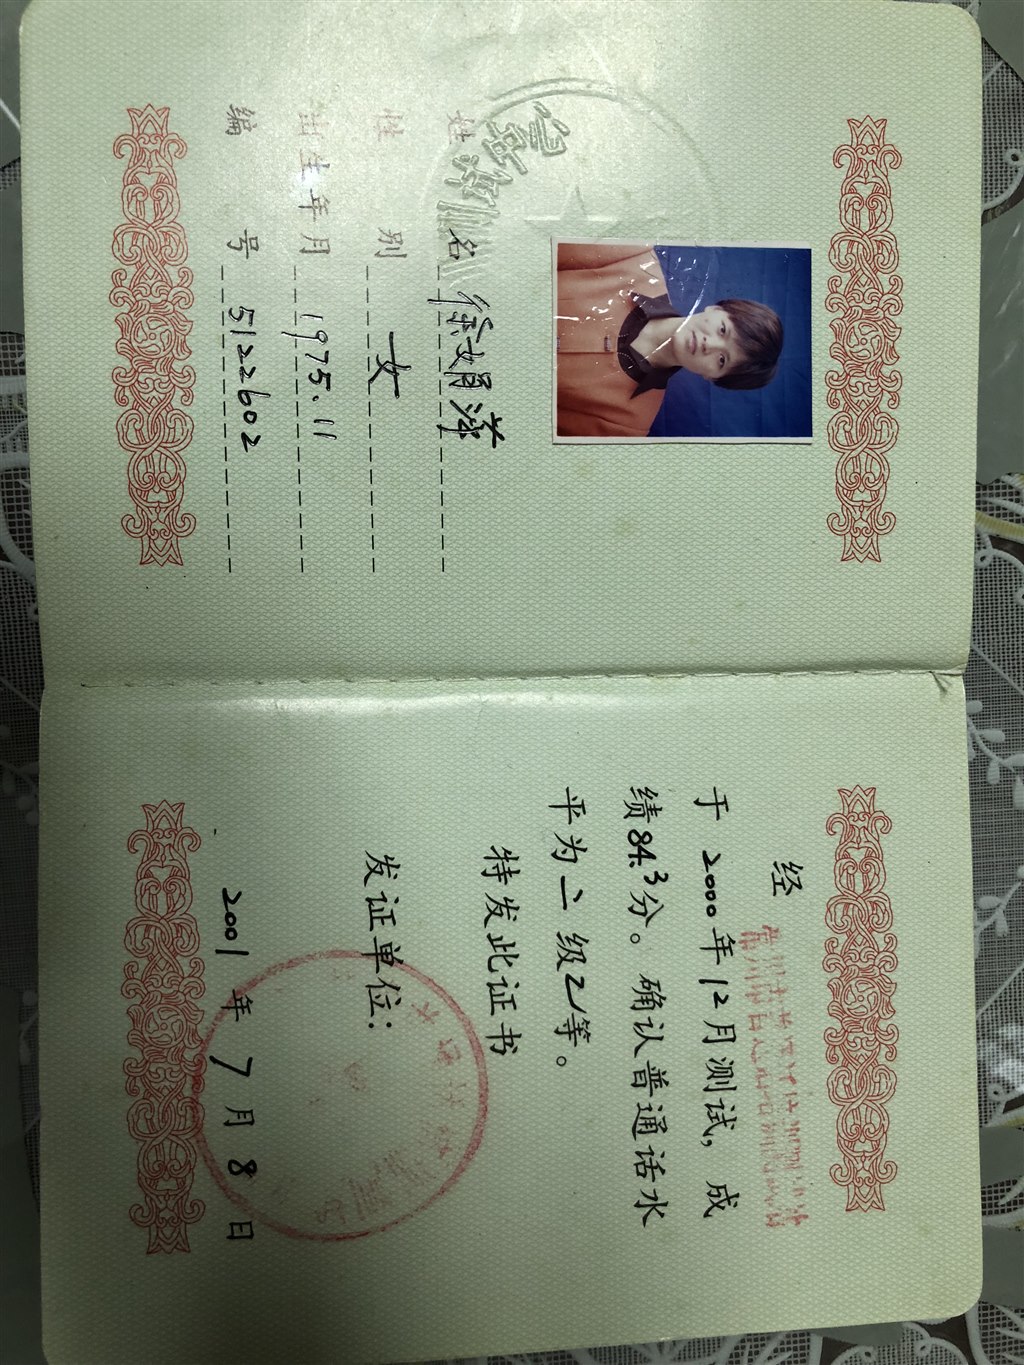 姓名 徐娟萍
性别 女
出生年月 1975.11
编号 5122602
经
于 2000 年 12 月测试，成
绩 84.3 分。确认普通话水
平为 二 级 乙 等。
特发此证书
发证单位：
2001 年 7 月 8 日